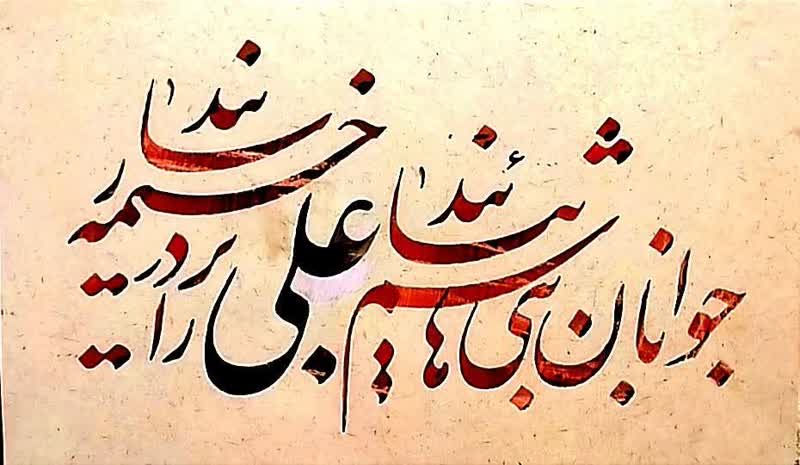 جوانان بنی هاشم بیائید
علی را بر در خیمه رسانید